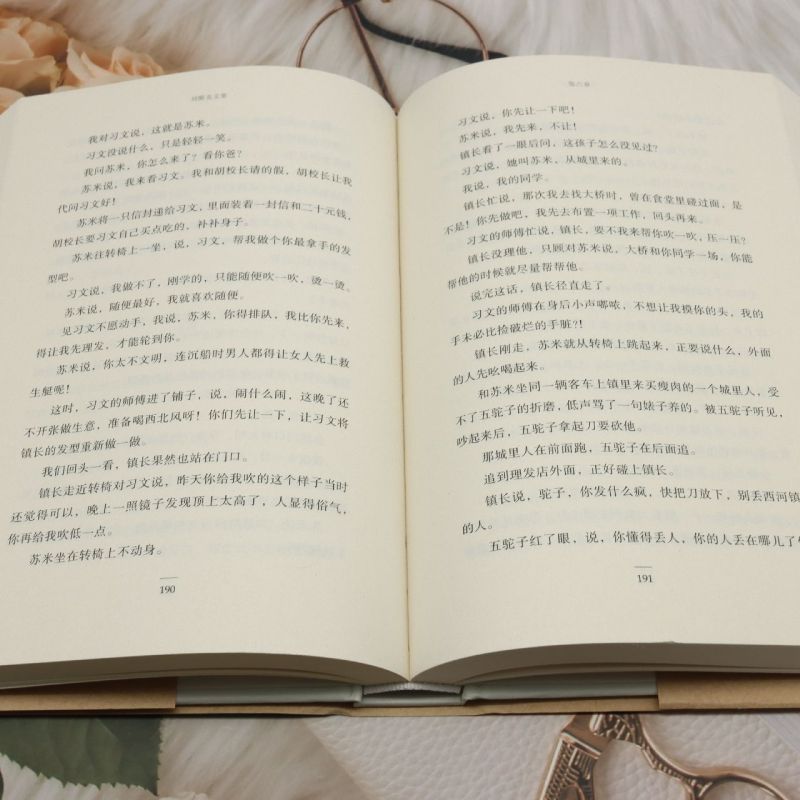 我对习文说，这就是苏米。
习文没说什么，只是轻轻一笑。
我问苏米，你怎么来了？看你爸？
苏米说，我来看习文。我和胡校长请的假，胡校长让我
代问习文好！
苏米将一只信封递给习文，里面装着一封信和二十元钱，
胡校长要习文自己买点吃的，补补身子。
苏米往转椅上一坐，说，习文，帮我做个你最拿手的发
型吧。
习文说，我做不了，刚学的，只能随便吹一吹，烫一烫。
苏米说，随便最好，我就喜欢随便。
见习文不愿动手，我说，苏米，你得排队，我比你先来，
得让我先理发，才能轮到你。
苏米说，你太不文明，连沉船时男人都得让女人先上救
生艇呢！
这时，习文的师傅进了铺子，说，闹什么闹，这晚了还
不开张做生意，准备喝西北风呀！你们先让一下，让习文将
镇长的发型重新做一做。
我们回头一看，镇长果然也站在门口。
镇长走近转椅对习文说，昨天你给我吹的这个样子当时
还觉得可以，晚上一照镜子发现顶上太高了，人显得俗气，
你再给我吹低一点。
苏米坐在转椅上不动身。
190
第六章
习文说，你先让一下吧！
苏米说，我先来，不让！
镇长看了一眼后问，这孩子怎么没见过？
习文说，她叫苏米，从城里来的。
我说，我的同学。
镇长忙说，那次我去找大桥时，曾在食堂里碰过面，是
不是！你先做吧，我先去布置一项工作，回头再来。
习文的师傅忙说，镇长，要不我来帮你吹一吹，压一压？
镇长没理他，只顾对苏米说，大桥和你同学一场，你能
帮他的时候就尽量帮帮他。
说完这话，镇长径直走了。
习文的师傅在身后小声嘟哝，不想让我摸你的头，我的
手未必比捡破烂的手脏？！
镇长刚走，苏米就从转椅上跳起来，正要说什么，外面
的人先吆喝起来。
和苏米坐同一辆客车上镇里来买瘦肉的一个城里人，受
不了五驼子的折磨，低声骂了一句婊子养的。被五驼子听见，
吵起来后，五驼子拿起刀要砍他。
那城里人在前面跑，五驼子在后面追。
追到理发店外面，正好碰上镇长。
镇长说，驼子，你发什么疯，快把刀放下，别丢西河镇
的人。
五驼子红了眼，说，你懂得丢人，你的人丢在哪儿了
191